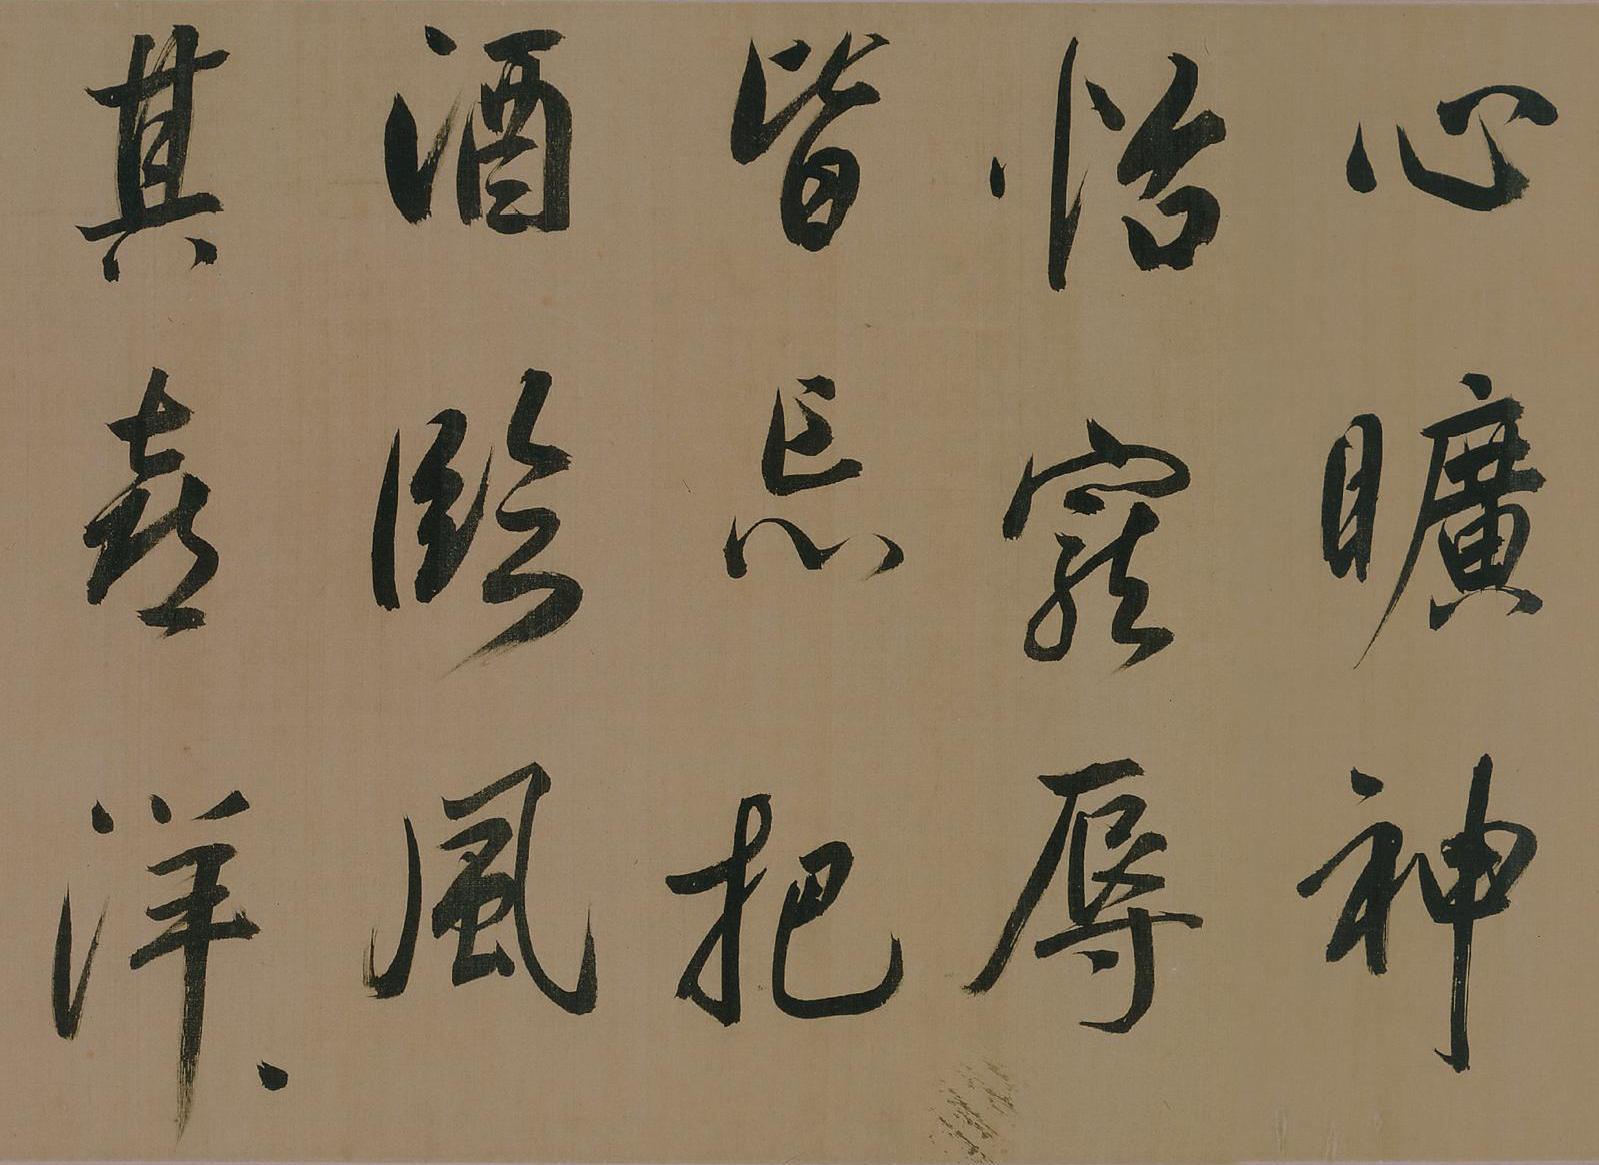 心曠神
怡寵辱
皆忘把
酒臨風
其喜洋